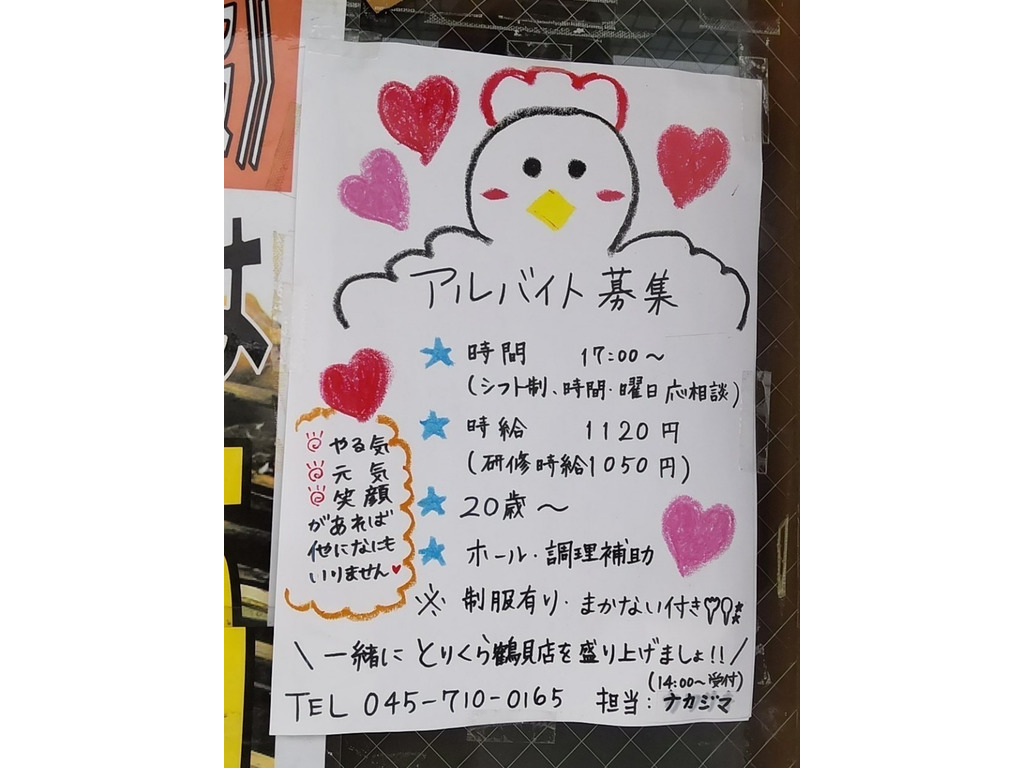 アルバイト募集
★ 時間 17:00～
(シフト制、時間・曜日応相談)
★ 時給 1120円
(研修時給1050円)
★ 20歳～
★ ホール・調理補助
※ 制服有り・まかない付き
やる気
元気
笑顔
があれば
他になにも
いりません♥
\ 一緒に とりくら鶴見店を盛り上げましょ!! /
(14:00～受付)
TEL 045-710-0165 担当:ナカジマ
は